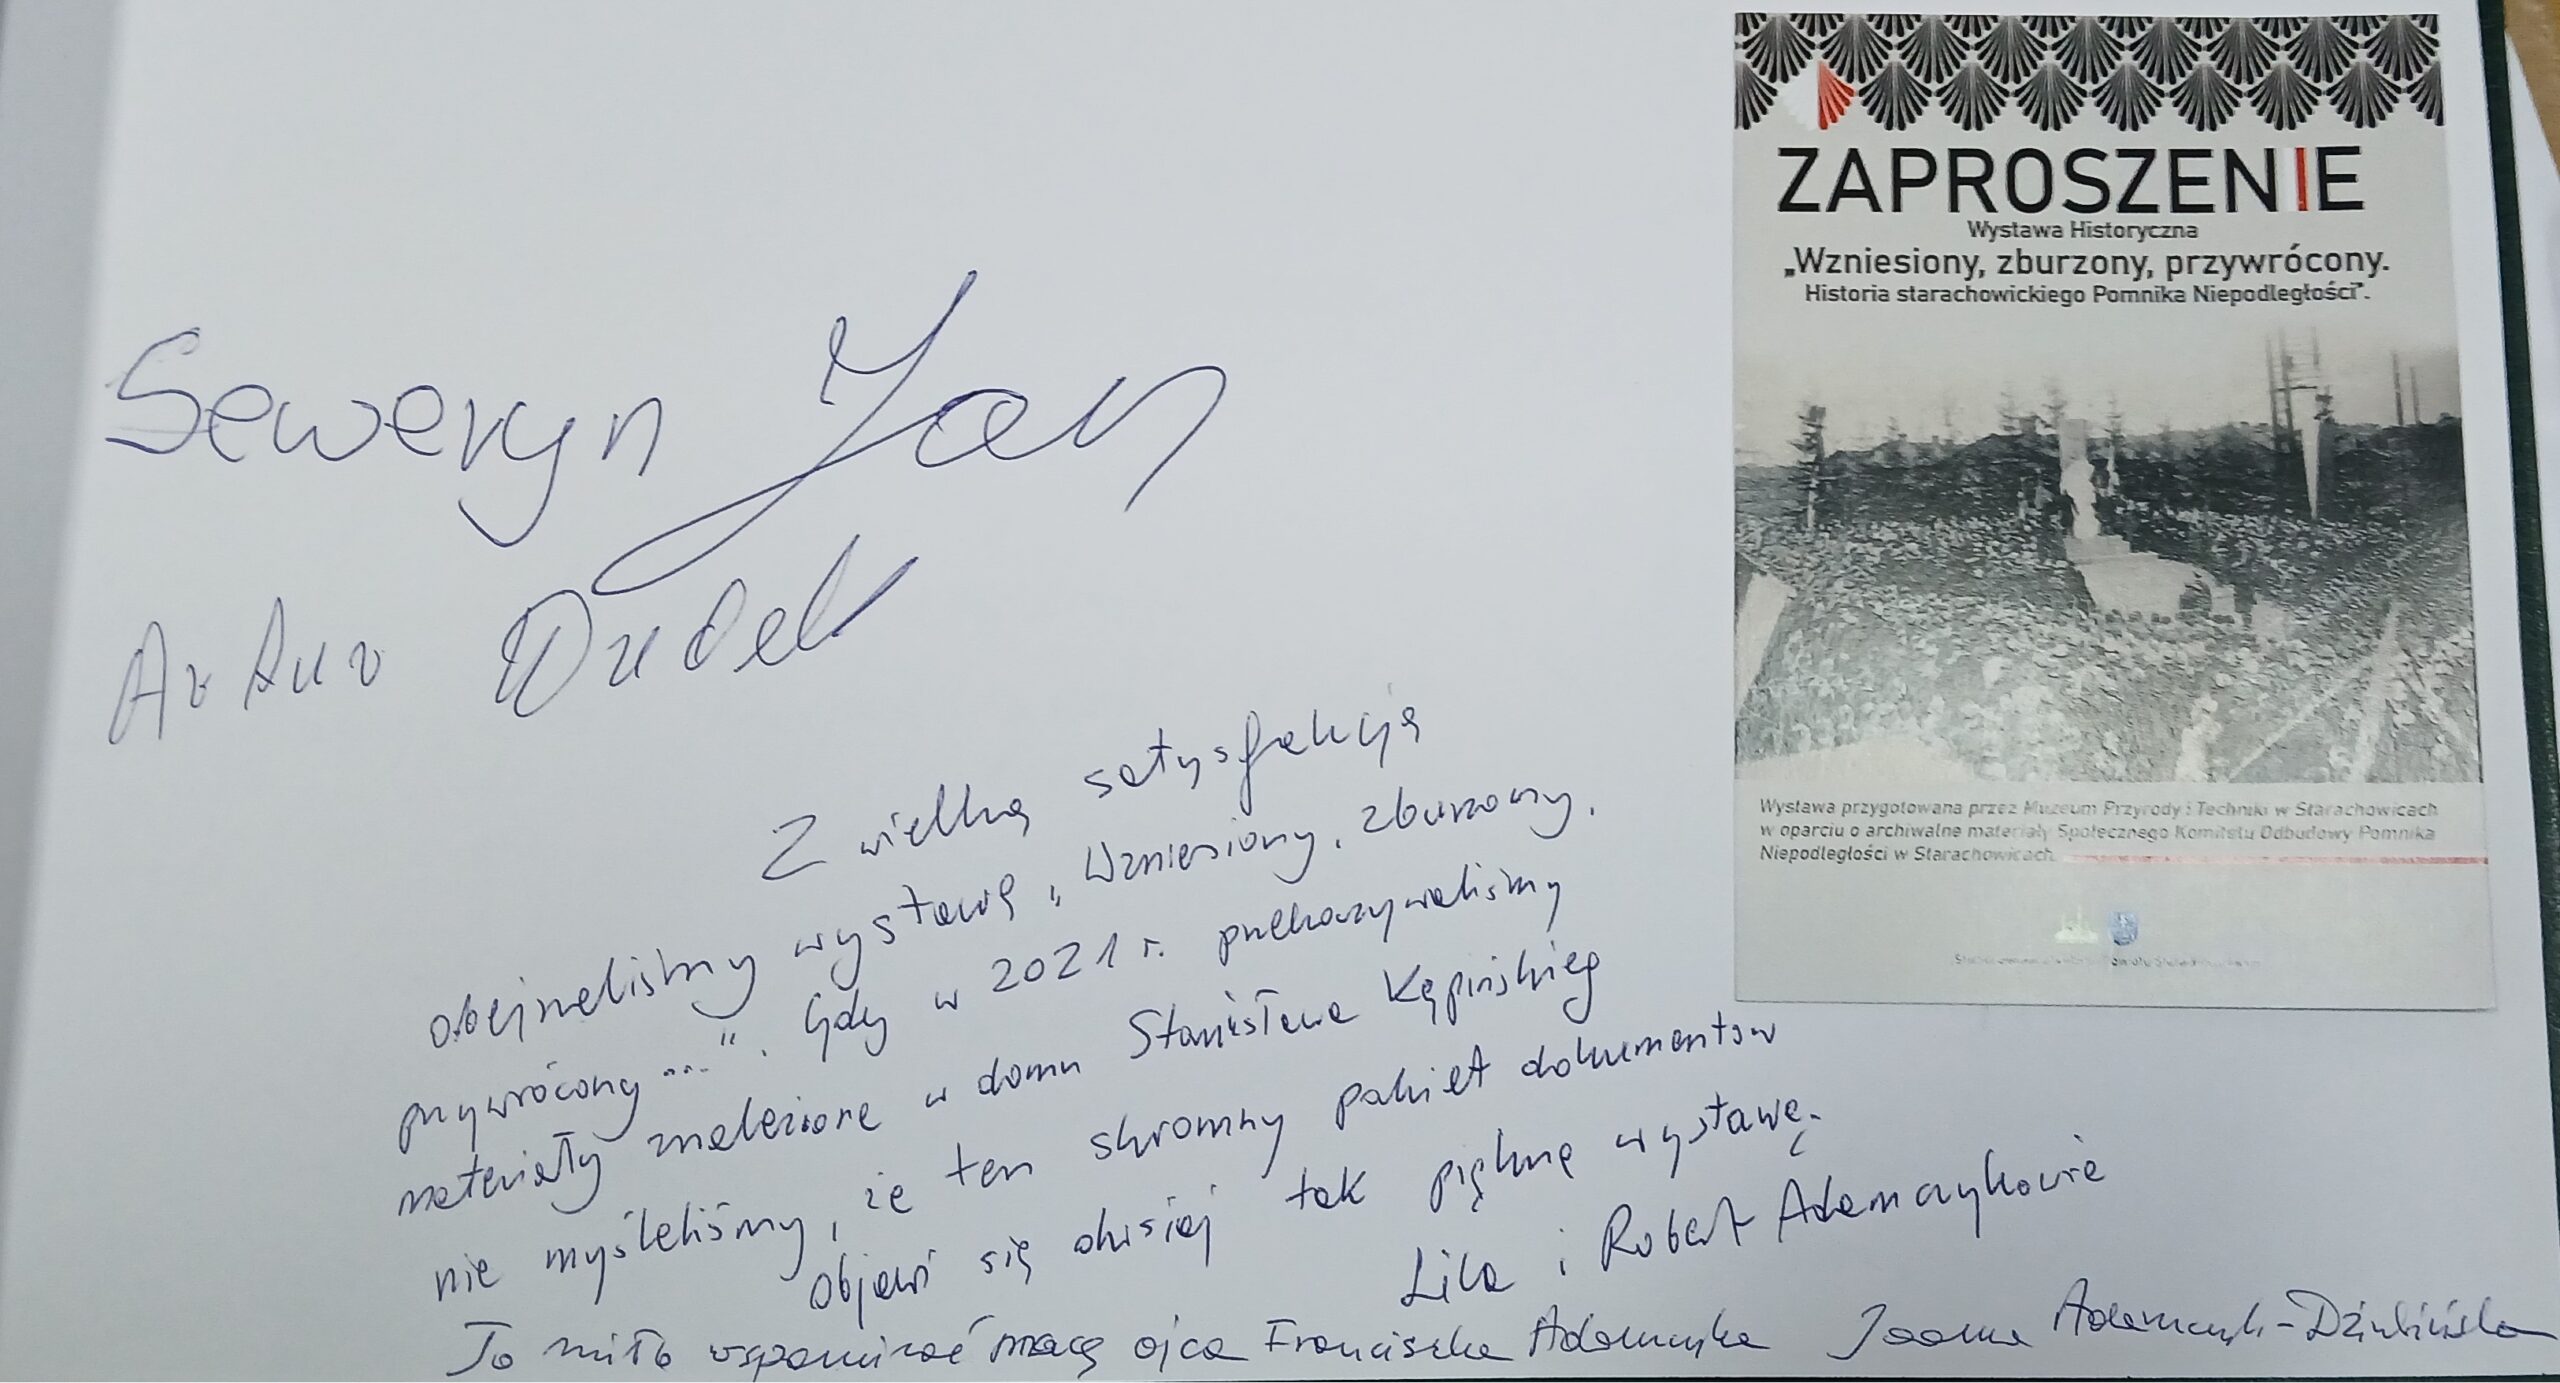 Seweryn Jan
Artur Dudek
Z wielką satysfakcją
obejrzeliśmy wystawę „Wzniesiony, zburzony,
przywrócony..." . Gdy w 2021 r. przekazywaliśmy
materiały znalezione w domu Stanisława Kępińskieg
nie myśleliśmy, że ten skromny pakiet dokumentów
objawi się dzisiaj tak piękną wystawą.
Lila i Robert Adamczykowie
To miło wspominać pracę ojca Franciszka Adamczyka Joanna Adamczyk-
ZAPROSZENIE
Wystawa Historyczna
„Wzniesiony, zburzony, przywrócony.
Historia starachowickiego Pomnika Niepodległości".
Wystawa przygotowana przez Muzeum Przyrody i Techniki w Starachowicach
w oparciu o archiwalne materiały Społecznego Komitetu Odbudowy Pomnika
Niepodległości w Starachowicach.